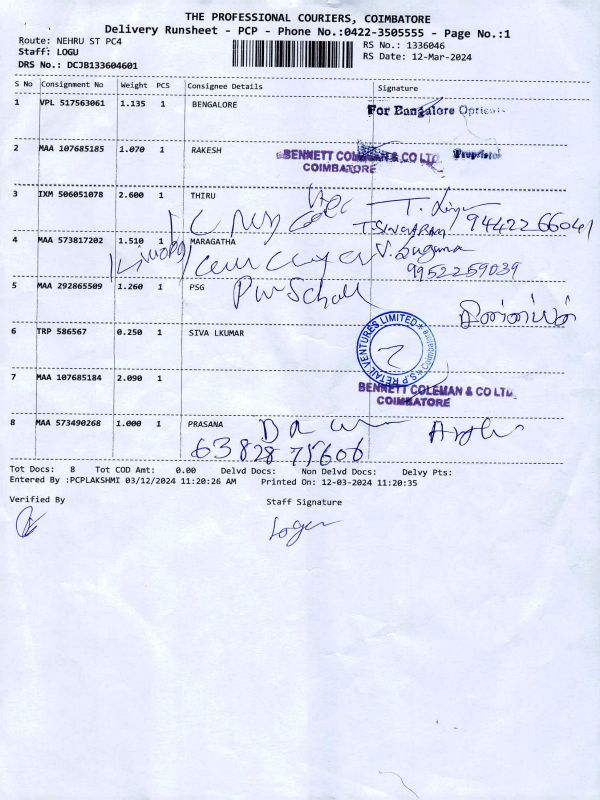 THE PROFESSIONAL COURIERS, COIMBATORE
Delivery Runsheet - PCP - Phone No.:0422-3505555 - Page No.:1
Route: NEHRU ST PC4
RS No.: 1336046
Staff: LOGU
RS Date: 12-Mar-2024
DRS No.: DCJB133604601
S No Consignment No Weight PCS Consignee Details Signature
1 VPL 517563061 1.135 1 BENGALORE
For Bangalore
2 MAA 107685185 1.070 1 RAKESH
BENNETT COLEMAN & CO LTD. Proprietor
COIMBATORE
3 IXM 506051078 2.600 1 THIRU
9442266041
4 MAA 573817202 1.510 1 MARAGATHA
V. Suguna
9952259039
5 MAA 292865509 1.260 1 PSG
6 TRP 586567 0.250 1 SIVA LKUMAR
S.P RETAIL VENTURES LIMITED * Coimbatore *
7 MAA 107685184 2.090 1
BENNETT COLEMAN & CO LTD.
COIMBATORE
8 MAA 573490268 1.000 1 PRASANA
63828 75606
Tot Docs: 8 Tot COD Amt: 0.00 Delvd Docs: Non Delvd Docs: Delvy Pts:
Entered By :PCPLAKSHMI 03/12/2024 11:20:26 AM Printed On: 12-03-2024 11:20:35
Verified By Staff Signature